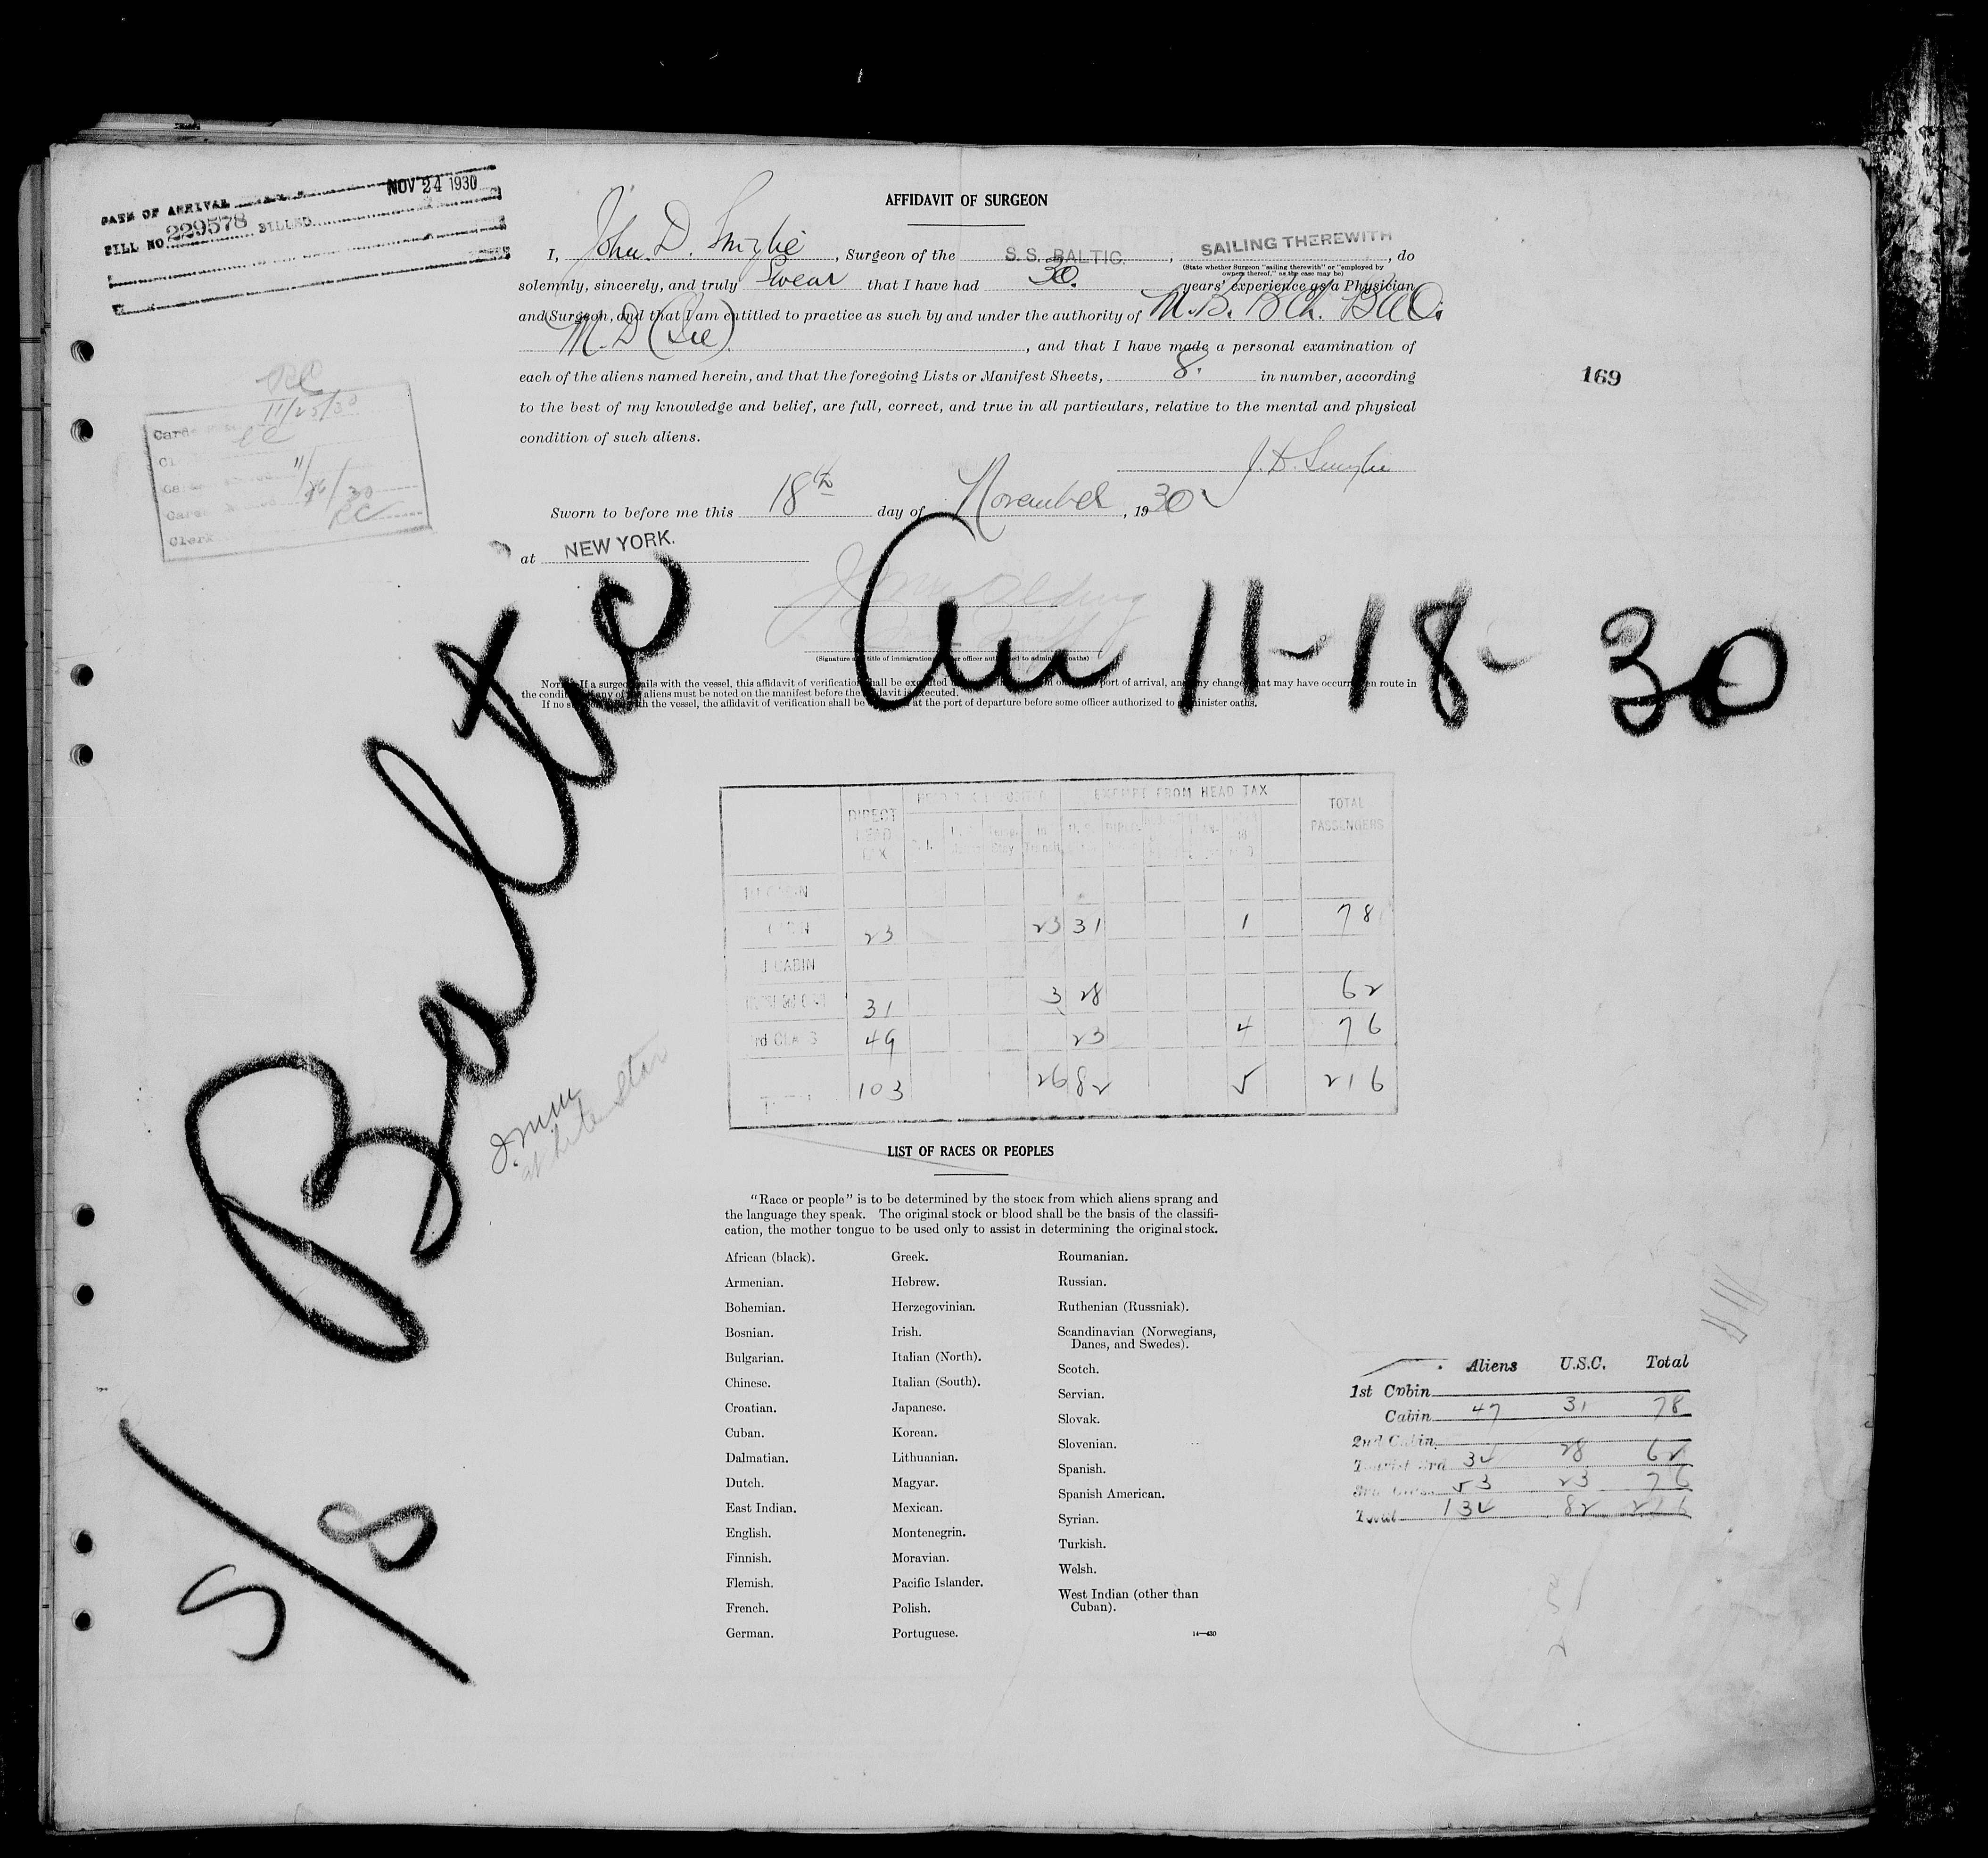 DATE OF ARRIVAL NOV 24 1930
BILL NO. 229578 BILLED
AFFIDAVIT OF SURGEON
I, John D. Smylie, Surgeon of the S. S. BALTIC., SAILING THEREWITH, do
(State whether Surgeon "sailing therewith" or "employed by
owners thereof," as the case may be)
solemnly, sincerely, and truly Swear that I have had 30. years' experience as a Physician
and Surgeon, and that I am entitled to practice as such by and under the authority of M.B. BCh. BAO.
M.D, and that I have made a personal examination of
each of the aliens named herein, and that the foregoing Lists or Manifest Sheets, 8. in number, according
to the best of my knowledge and belief, are full, correct, and true in all particulars, relative to the mental and physical
condition of such aliens.
J. D. Smylie
Sworn to before me this 18th day of November, 1930
at NEW YORK.
169
11/25/30
Clerk
Baltic
Arr 11-18-30
(Signature and title of immigration or other officer authorized to administer oaths)
NOTE.—If a surgeon sails with the vessel, this affidavit of verification shall be executed port of arrival, and any changes that may have occurred en route in
the condition if any of the aliens must be noted on the manifest before the affidavit is executed.
If no surgeon sails with the vessel, the affidavit of verification shall be at the port of departure before some officer authorized to administer oaths.
DIRECT HEAD TAX EXEMPT FROM HEAD TAX TOTAL PASSENGERS
CABIN 23 23 31 1 78
CABIN
31 3 28 62
3rd CLASS 49 23 4 76
103 26 82 5 216
White Star
S/8
LIST OF RACES OR PEOPLES
"Race or people" is to be determined by the stock from which aliens sprang and
the language they speak. The original stock or blood shall be the basis of the classifi-
cation, the mother tongue to be used only to assist in determining the original stock.
African (black).
Armenian.
Bohemian.
Bosnian.
Bulgarian.
Chinese.
Croatian.
Cuban.
Dalmatian.
Dutch.
East Indian.
English.
Finnish.
Flemish.
French.
German.
Greek.
Hebrew.
Herzegovinian.
Irish.
Italian (North).
Italian (South).
Japanese.
Korean.
Lithuanian.
Magyar.
Mexican.
Montenegrin.
Moravian.
Pacific Islander.
Polish.
Portuguese.
Roumanian.
Russian.
Ruthenian (Russniak).
Scandinavian (Norwegians,
Danes, and Swedes).
Scotch.
Servian.
Slovak.
Slovenian.
Spanish.
Spanish American.
Syrian.
Turkish.
Welsh.
West Indian (other than
Cuban).
14—430
Aliens U.S.C. Total
1st Cabin
Cabin 47 31 78
2nd Cabin
Tourist 3rd 34 28 62
3rd Class 53 23 76
Total 134 82 216